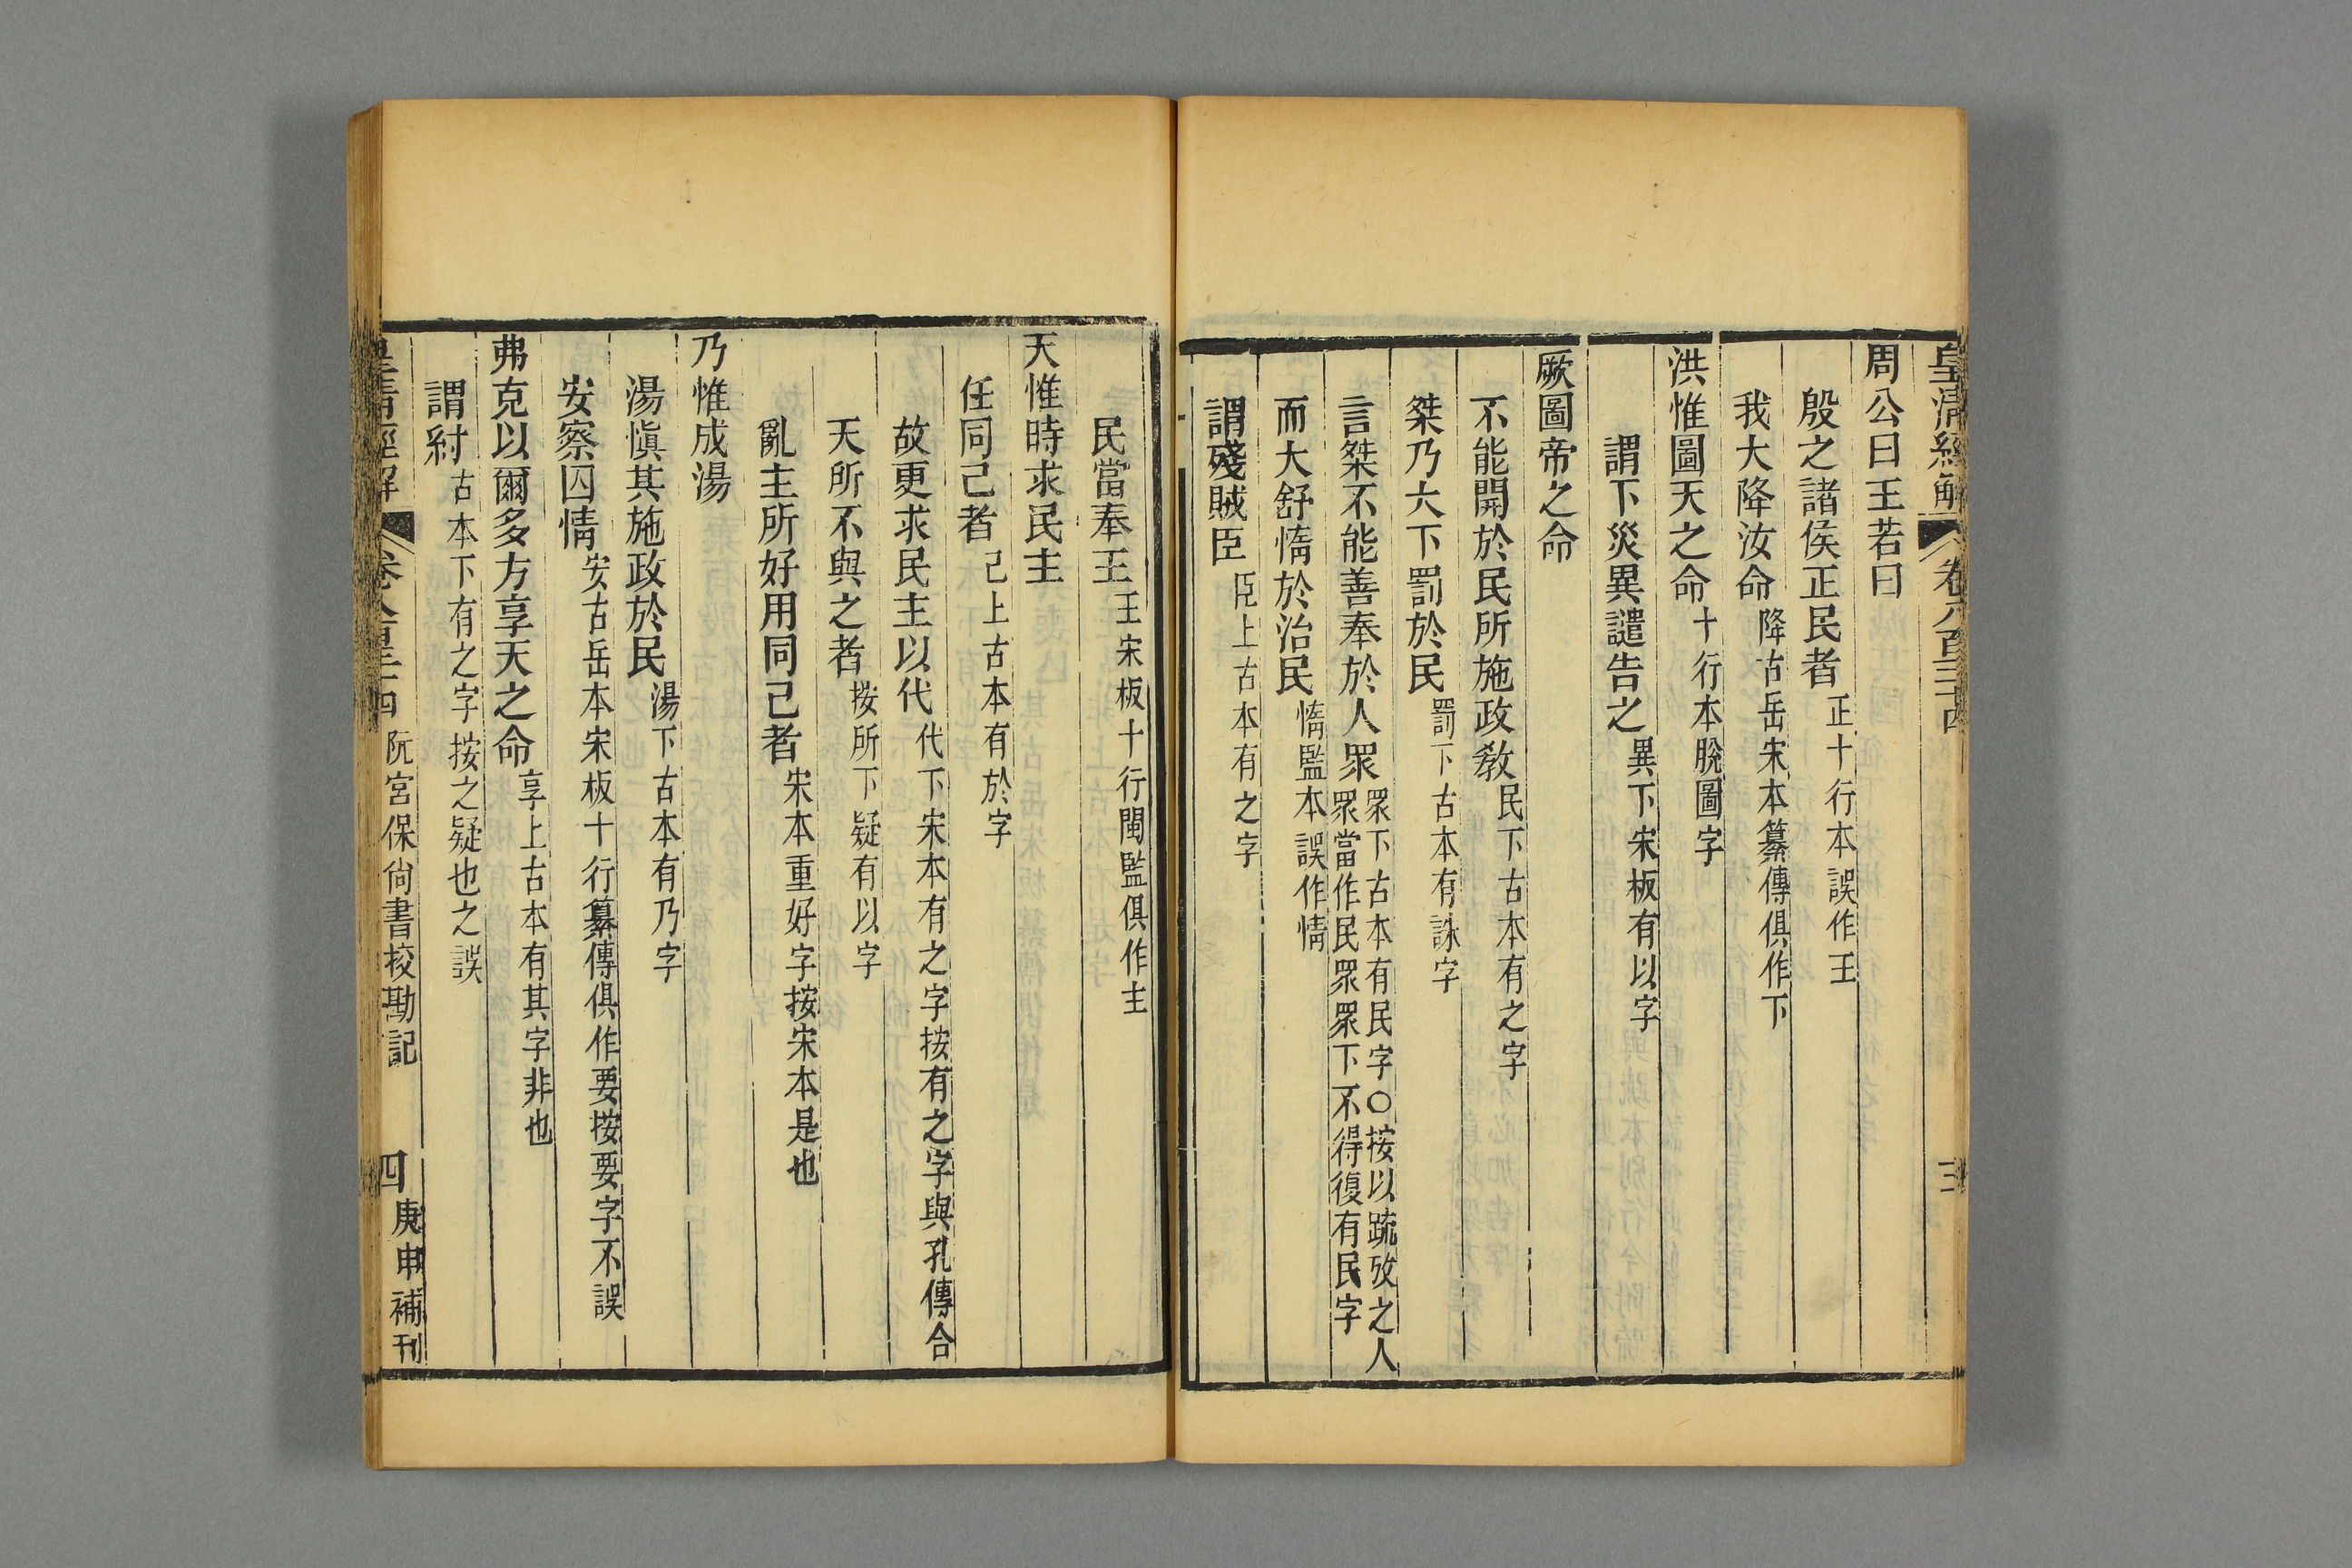 皇清經解 卷八百三十四 三
周公曰王若曰
殷之諸侯正民者正十行本誤作王
我大降汝命降古岳宋本纂傳俱作下
洪惟圖天之命十行本脫圖字
謂下災異譴告之異下宋板有以字
厥圖帝之命
不能開於民所施政敎民下古本有之字
桀乃大下罰於民罰下古本有誅字
言桀不能善奉於人眾眾下古本有民字○按以疏攷之人
眾當作民眾眾下不得復有民字
而大舒惰於治民惰監本誤作情
謂殘賊臣臣上古本有之字
民當奉王王宋板十行閩監俱作主
天惟時求民主
任同己者己上古本有於字
故更求民主以代代下宋本有之字按有之字與孔傳合
天所不與之者按所下疑有以字
亂主所好用同己者宋本重好字按宋本是也
乃惟成湯
湯愼其施政於民湯下古本有乃字
安察囚情安古岳本宋板十行纂傳俱作要按要字不誤
弗克以爾多方享天之命享上古本有其字非也
謂紂古本下有之字按之疑也之誤
皇清經解 卷八百三十四 阮宮保尙書校勘記 四 庚申補刊